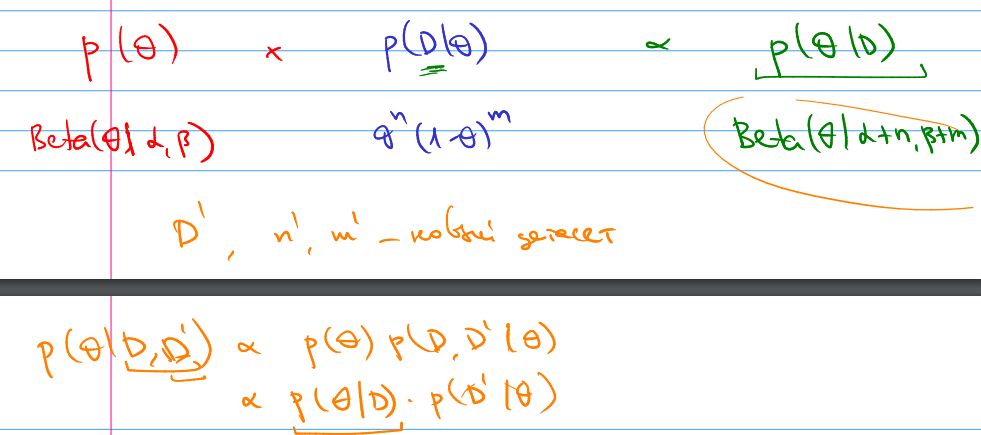 p(θ) × p(D|θ) ∝ p(θ|D)
Beta(θ|α,β) θⁿ(1-θ)ᵐ Beta(θ|α+n, β+m)
D', n', m' – новый датасет
p(θ|D,D') ∝ p(θ) p(D,D'|θ)
∝ p(θ|D)·p(D'|θ)